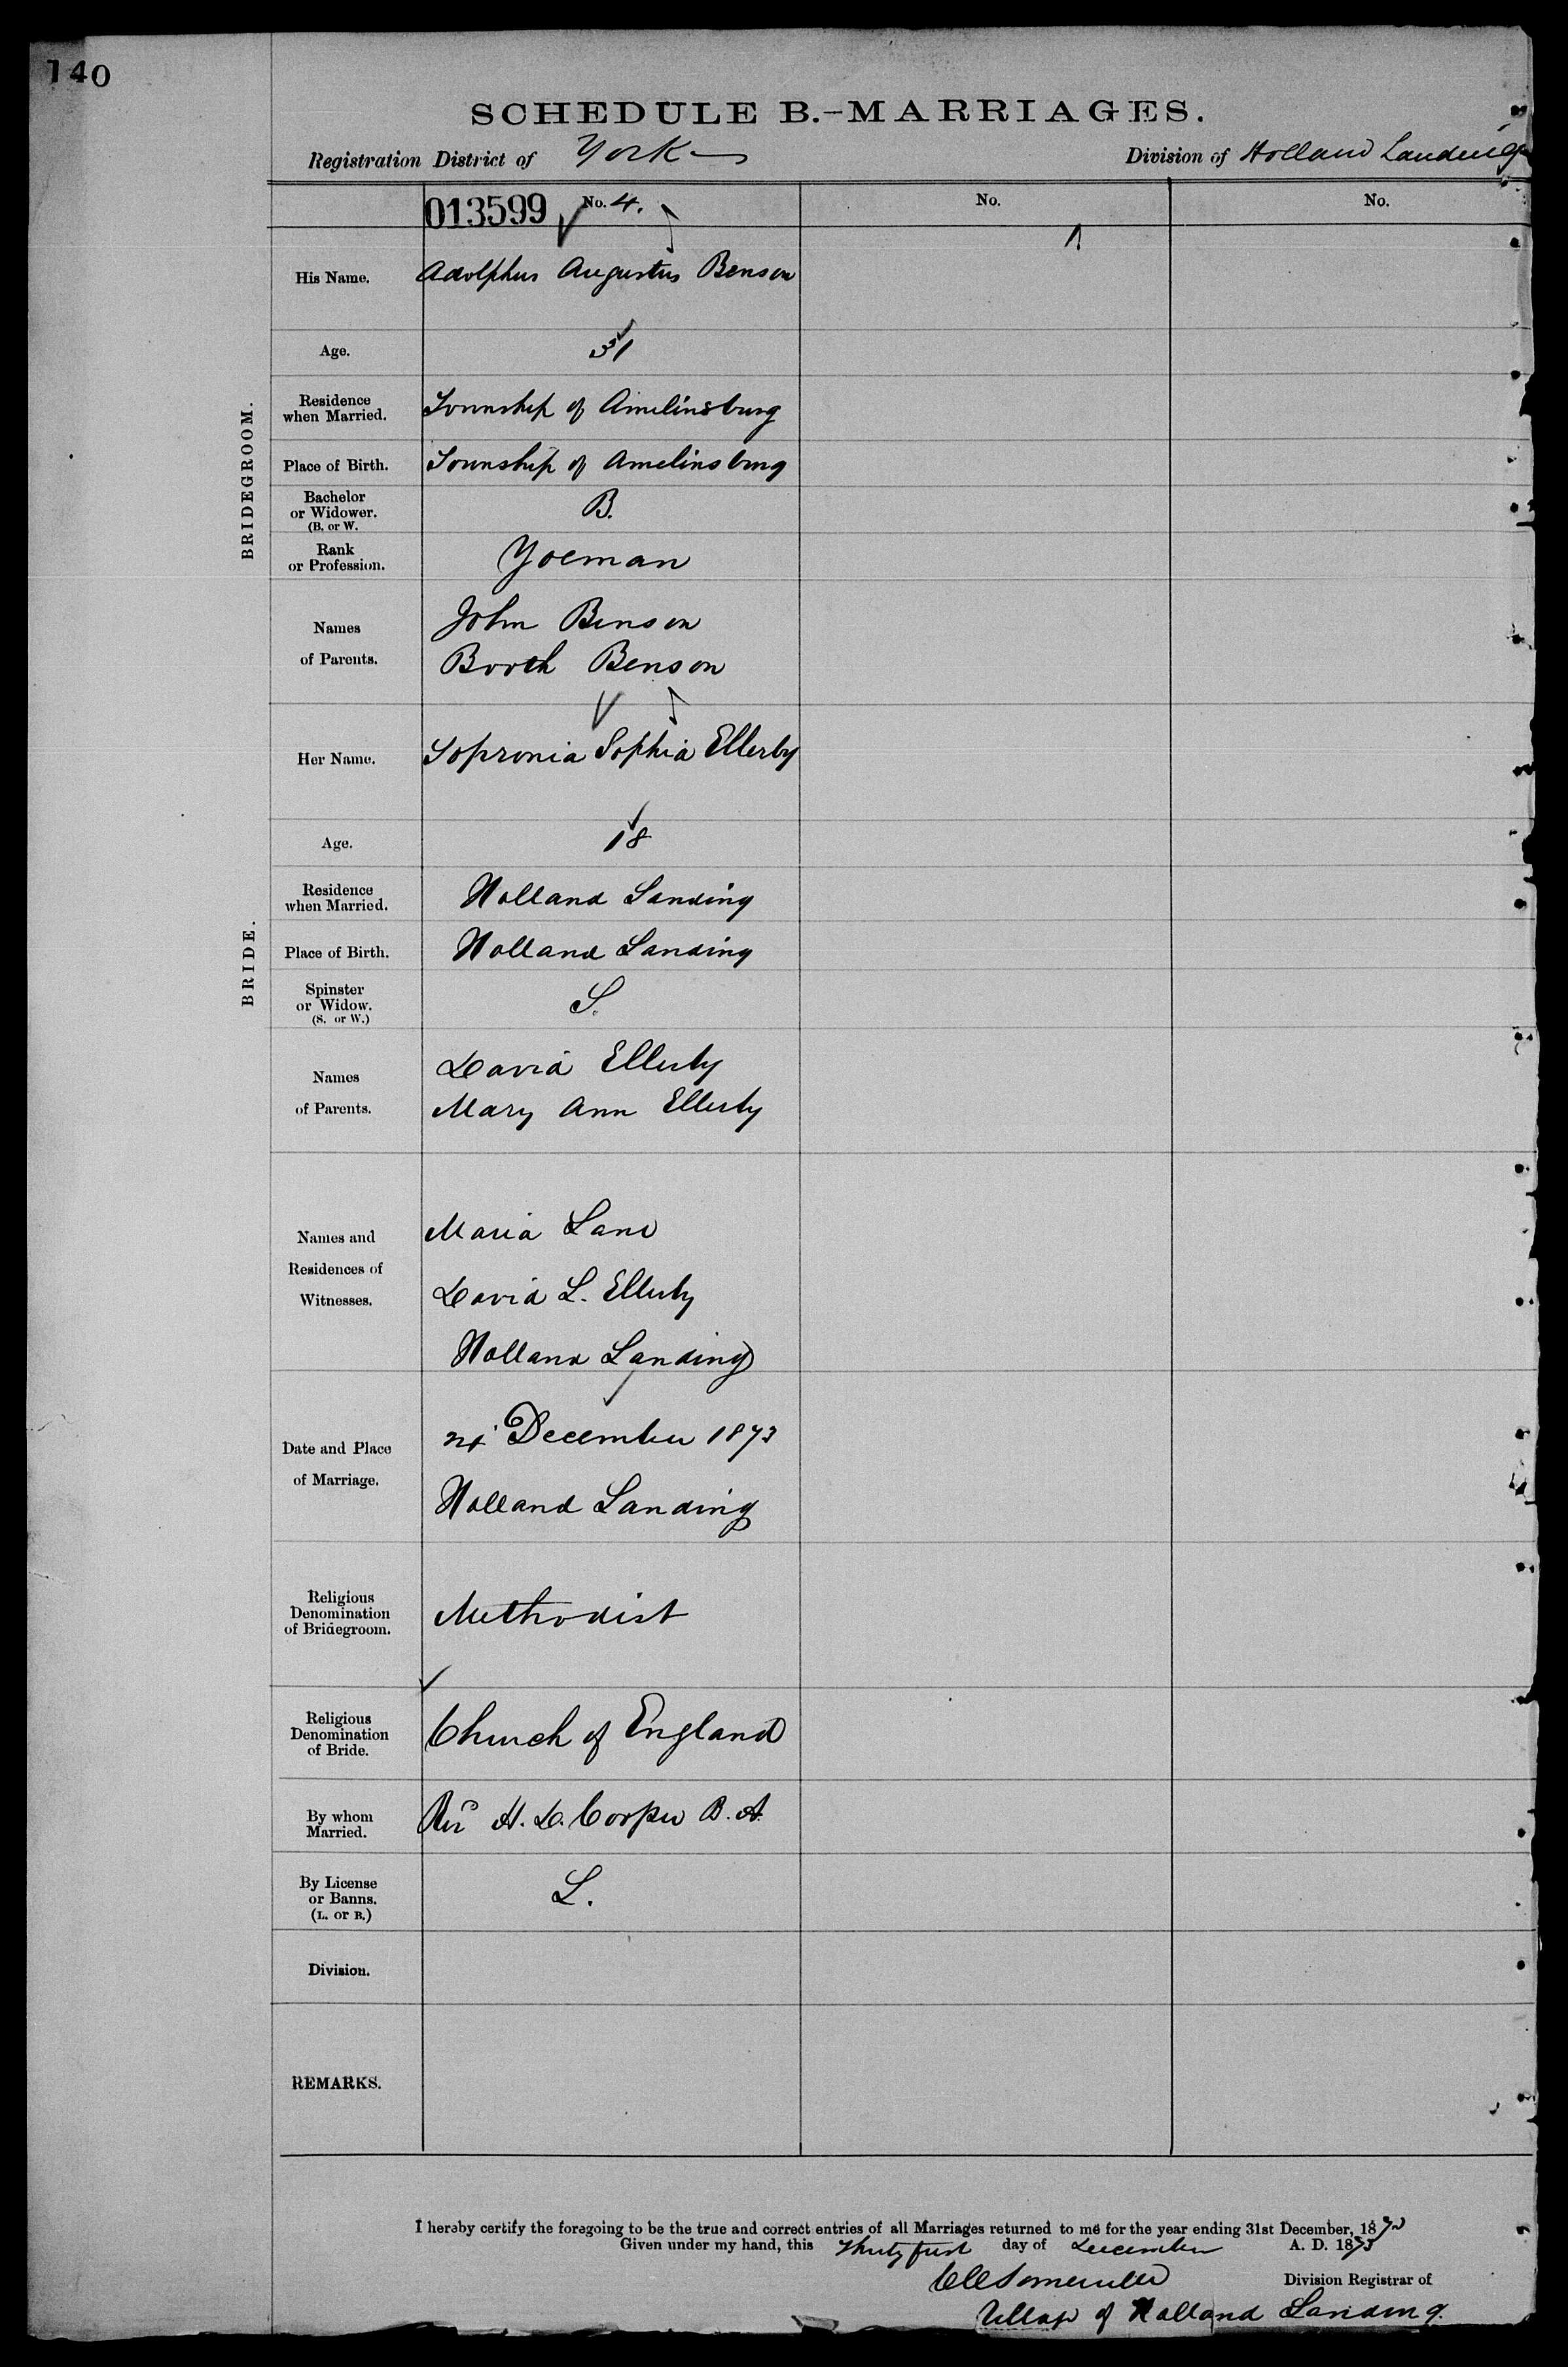 140
SCHEDULE B.-MARRIAGES.
Registration District of York Division of Holland Landing
013599 No. 4. No. No.
BRIDEGROOM.
His Name. Adolphus Augustus Benson
Age. 31
Residence when Married. Township of Amelinsburg
Place of Birth. Township of Amelinsburg
Bachelor or Widower. (B. or W. B.
Rank or Profession. Yoeman
Names of Parents. John Benson
Booth Benson
BRIDE.
Her Name. Sopronia Sophia Ellerby
Age. 18
Residence when Married. Holland Landing
Place of Birth. Holland Landing
Spinster or Widow. (S. or W.) S.
Names of Parents. David Ellerby
Mary Ann Ellerby
Names and Residences of Witnesses. Maria Lane
David L. Ellerby
Holland Landing
Date and Place of Marriage. December 1873
Holland Landing
Religious Denomination of Bridegroom. Methodist
Religious Denomination of Bride. Church of England
By whom Married. Rev H. D. Cooper B. A.
By License or Banns. (L. or B.) L.
Division.
REMARKS.
I hereby certify the foregoing to be the true and correct entries of all Marriages returned to me for the year ending 31st December, 1873
Given under my hand, this Thirty first day of December A. D. 1873
Division Registrar of
Village of Holland Landing